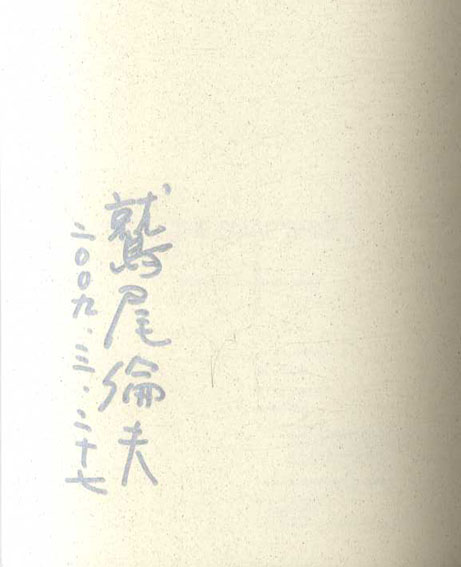 鷲尾倫夫
二〇〇九.三.二十七